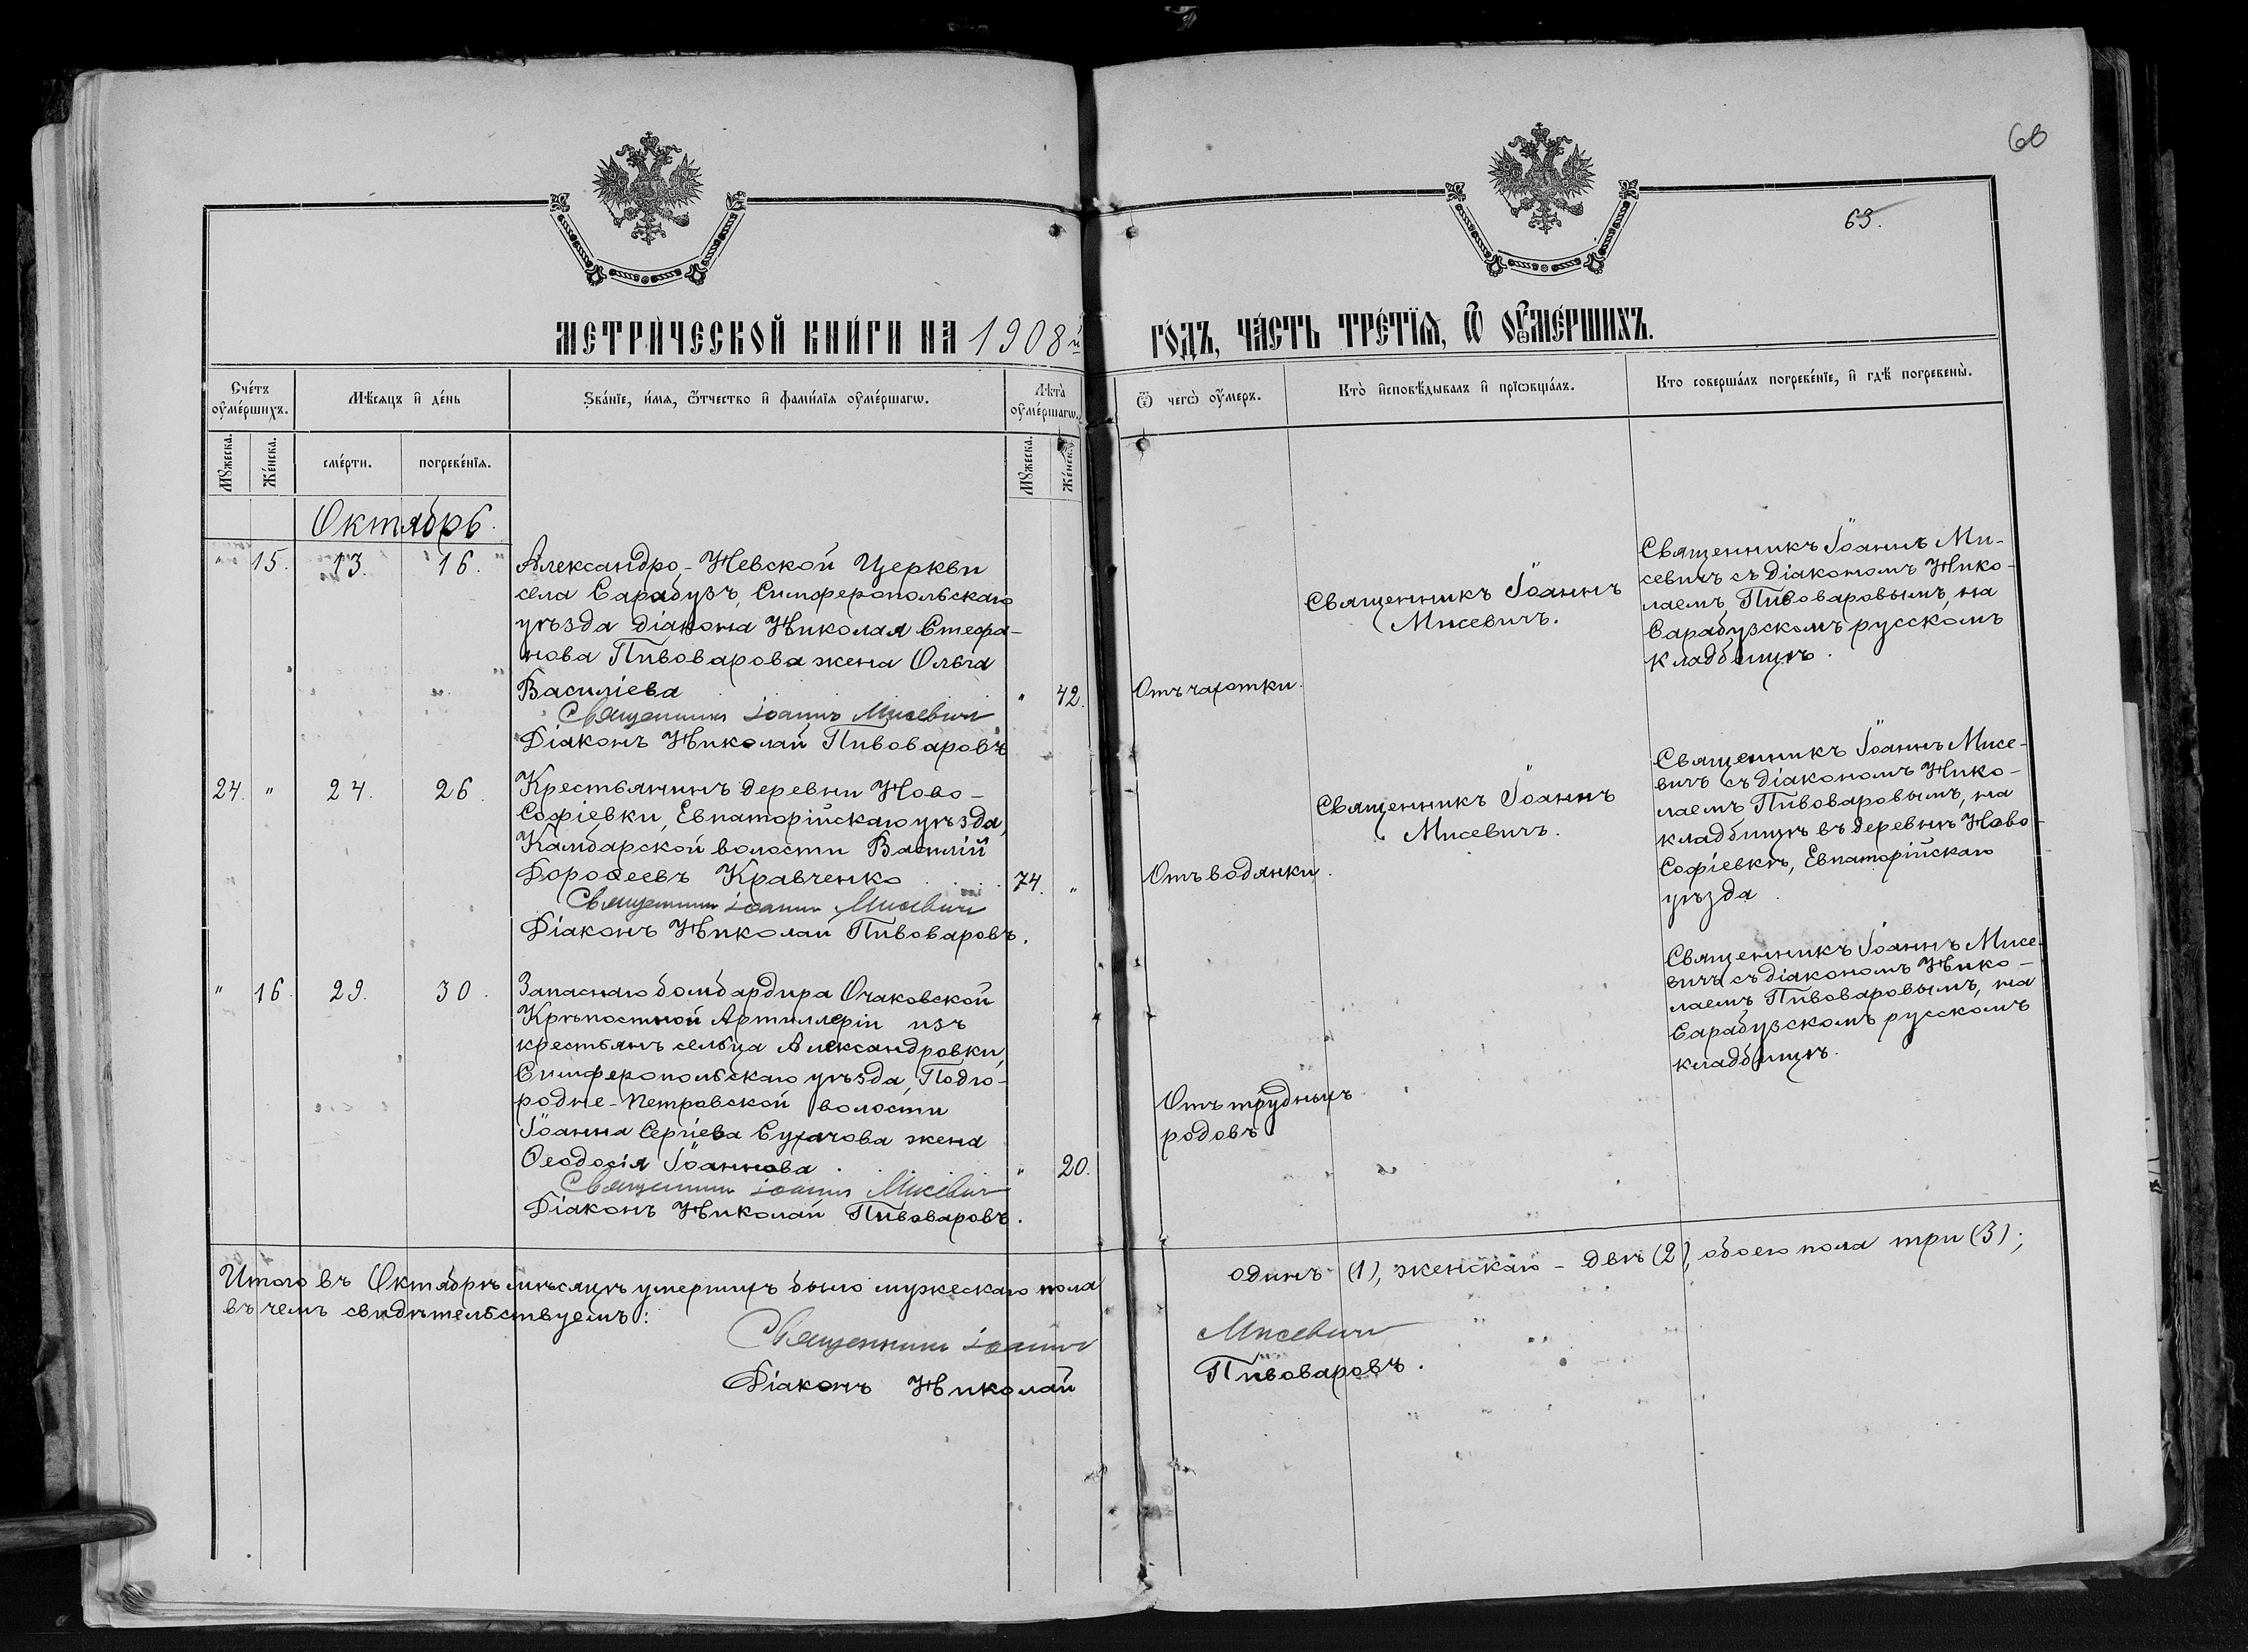 60
69.
МЕТРИ́ЧЕСКОЙ КНИ́ГИ НА 1908й
ГО́ДЪ, ЧА́СТЬ ТРЕ́ТЇѦ, Ѡ҆ ОУ҆МЕ́РШИХЪ.
Сче́тъ оу҆ме́ршихъ.
Мѣ́сѧцъ и҆ де́нь
Ѕва́нїе, и҆́мѧ, ѻ҆́тчество и҆ фами́лїѧ оу҆ме́ршагѡ.
Лѣ̀та оу҆ме́ршагѡ.
Ѿ чегѡ̀ оу҆́меръ.
Кто̀ и҆сповѣ́дывалъ и҆ прїѡбща́лъ.
Кто соверша́лъ погребе́нїе, и҆ гдѣ̀ погребены̀.
Мꙋ́жеска.
Же́нска.
сме́рти.
погребе́нїѧ.
Мꙋ́жеска.
Же́нска.
Октябрь.
" 15. 13. 16.
Александро-Невской Церкви
села Сарабузъ, Симферопольскаго
уѣзда діакона Николая Стефа-
нова Пивоварова жена Ольга
Василіева " 42.
Священникъ Іоаннъ Мисевичъ
Діаконъ Николай Пивоваровъ
Отъ чахотки.
Священникъ Іоаннъ
Мисевичъ.
Священникъ Іоаннъ Ми-
севичъ съ діакономъ Нико-
лаемъ Пивоваровымъ, на
Сарабузскомъ русскомъ
кладбищѣ.
24. " 24. 26.
Крестьянинъ деревни Ново-
Софіевки, Евпаторійскаго уѣзда,
Камбарской волости Василій
Дороѳеевъ Кравченко 74. "
Священникъ Іоаннъ Мисевичъ
Діаконъ Николай Пивоваровъ.
Отъ водянки.
Священникъ Іоаннъ
Мисевичъ.
Священникъ Іоаннъ Мисе-
вичъ съ діакономъ Нико-
лаемъ Пивоваровымъ, на
кладбищѣ въ деревнѣ Ново-
Софіевкѣ, Евпаторійскаго
уѣзда.
" 16. 29. 30.
Запаснаго бомбардира Очаковской
Крѣпостной Артиллеріи изъ
крестьянъ сельца Александровки,
Симферопольскаго уѣзда, Подго-
родне-Петровской волости
Іоанна Сергіева Сухачова жена
Ѳеодосія Іоаннова " 20.
Священникъ Іоаннъ Мисевичъ
Діаконъ Николай Пивоваровъ.
Отъ трудныхъ
родовъ
Священникъ Іоаннъ Мисе-
вичъ съ діакономъ Нико-
лаемъ Пивоваровымъ, на
Сарабузскомъ русскомъ
кладбищѣ.
Итого въ Октябрѣ мѣсяцѣ умершихъ было мужескаго пола одинъ (1), женскаго - двѣ (2), обоего пола три (3);
въ чемъ свидѣтельствуемъ:
Священникъ Іоаннъ Мисевичъ
Діаконъ Николай Пивоваровъ.